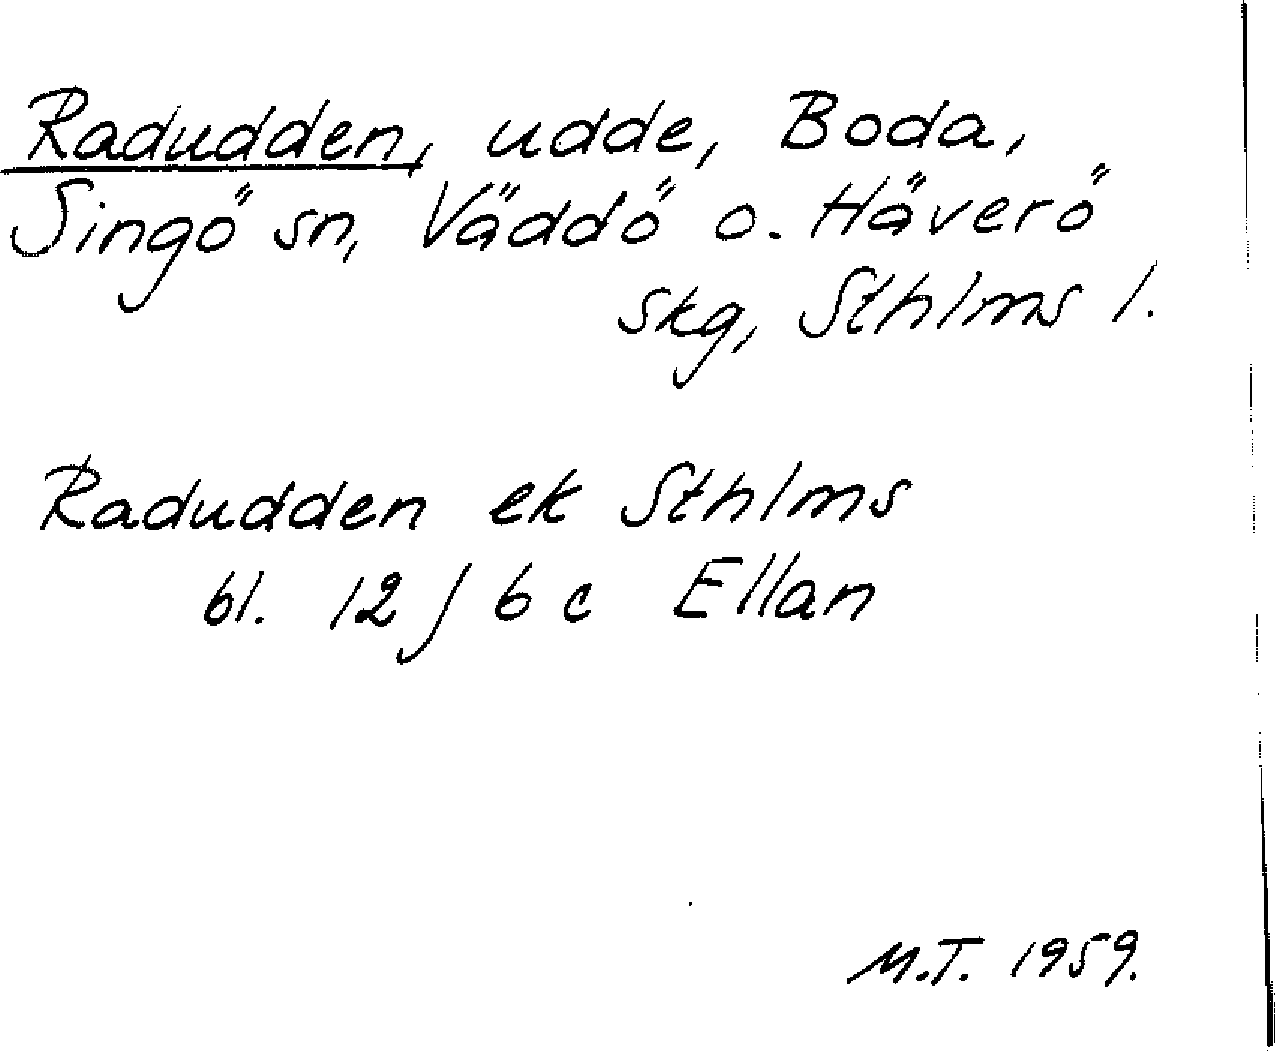 Radudden, udde, Boda,
Singö sn, Väddö o. Häverö
skg, Sthlms l.
Radudden ek Sthlms
bl. 12 J 6 c Ellan
M.T. 1959.